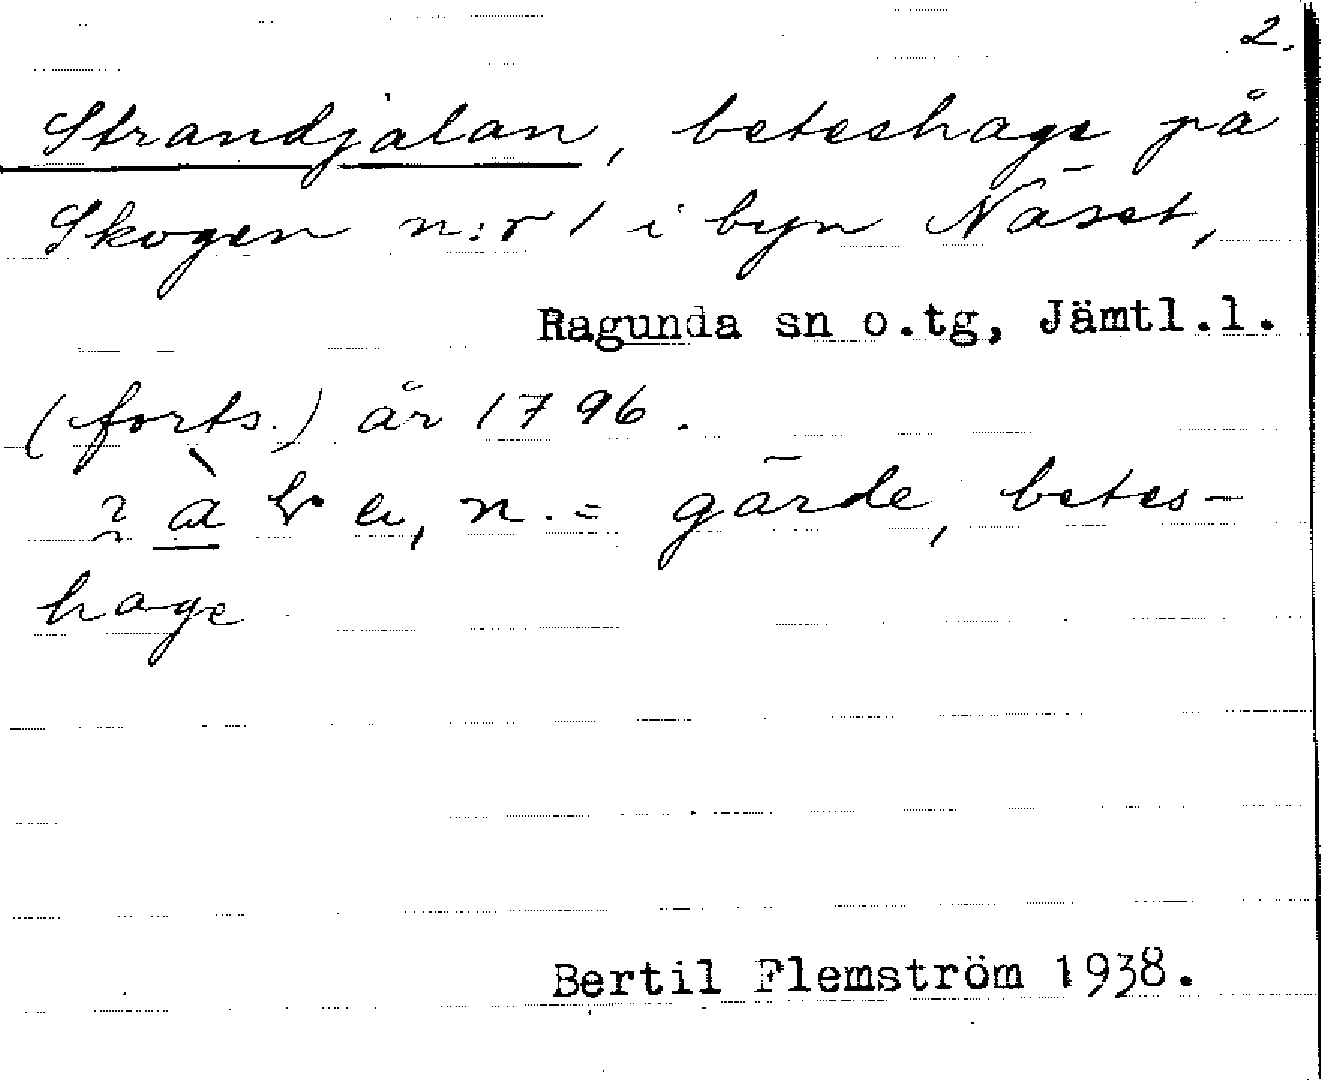 2.
Strandjalan, beteshage på
Skogen n:r 1 i byn Näset,
Ragunda sn o.tg, Jämtl.l.
(forts.) år 1796.
n. = gärde, betes-
hage
Bertil Flemström 1938.